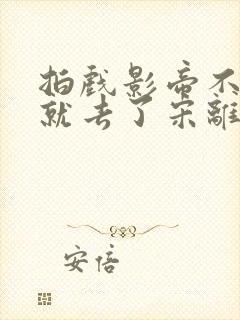 拍戏影帝不
就去了宋離
安倍